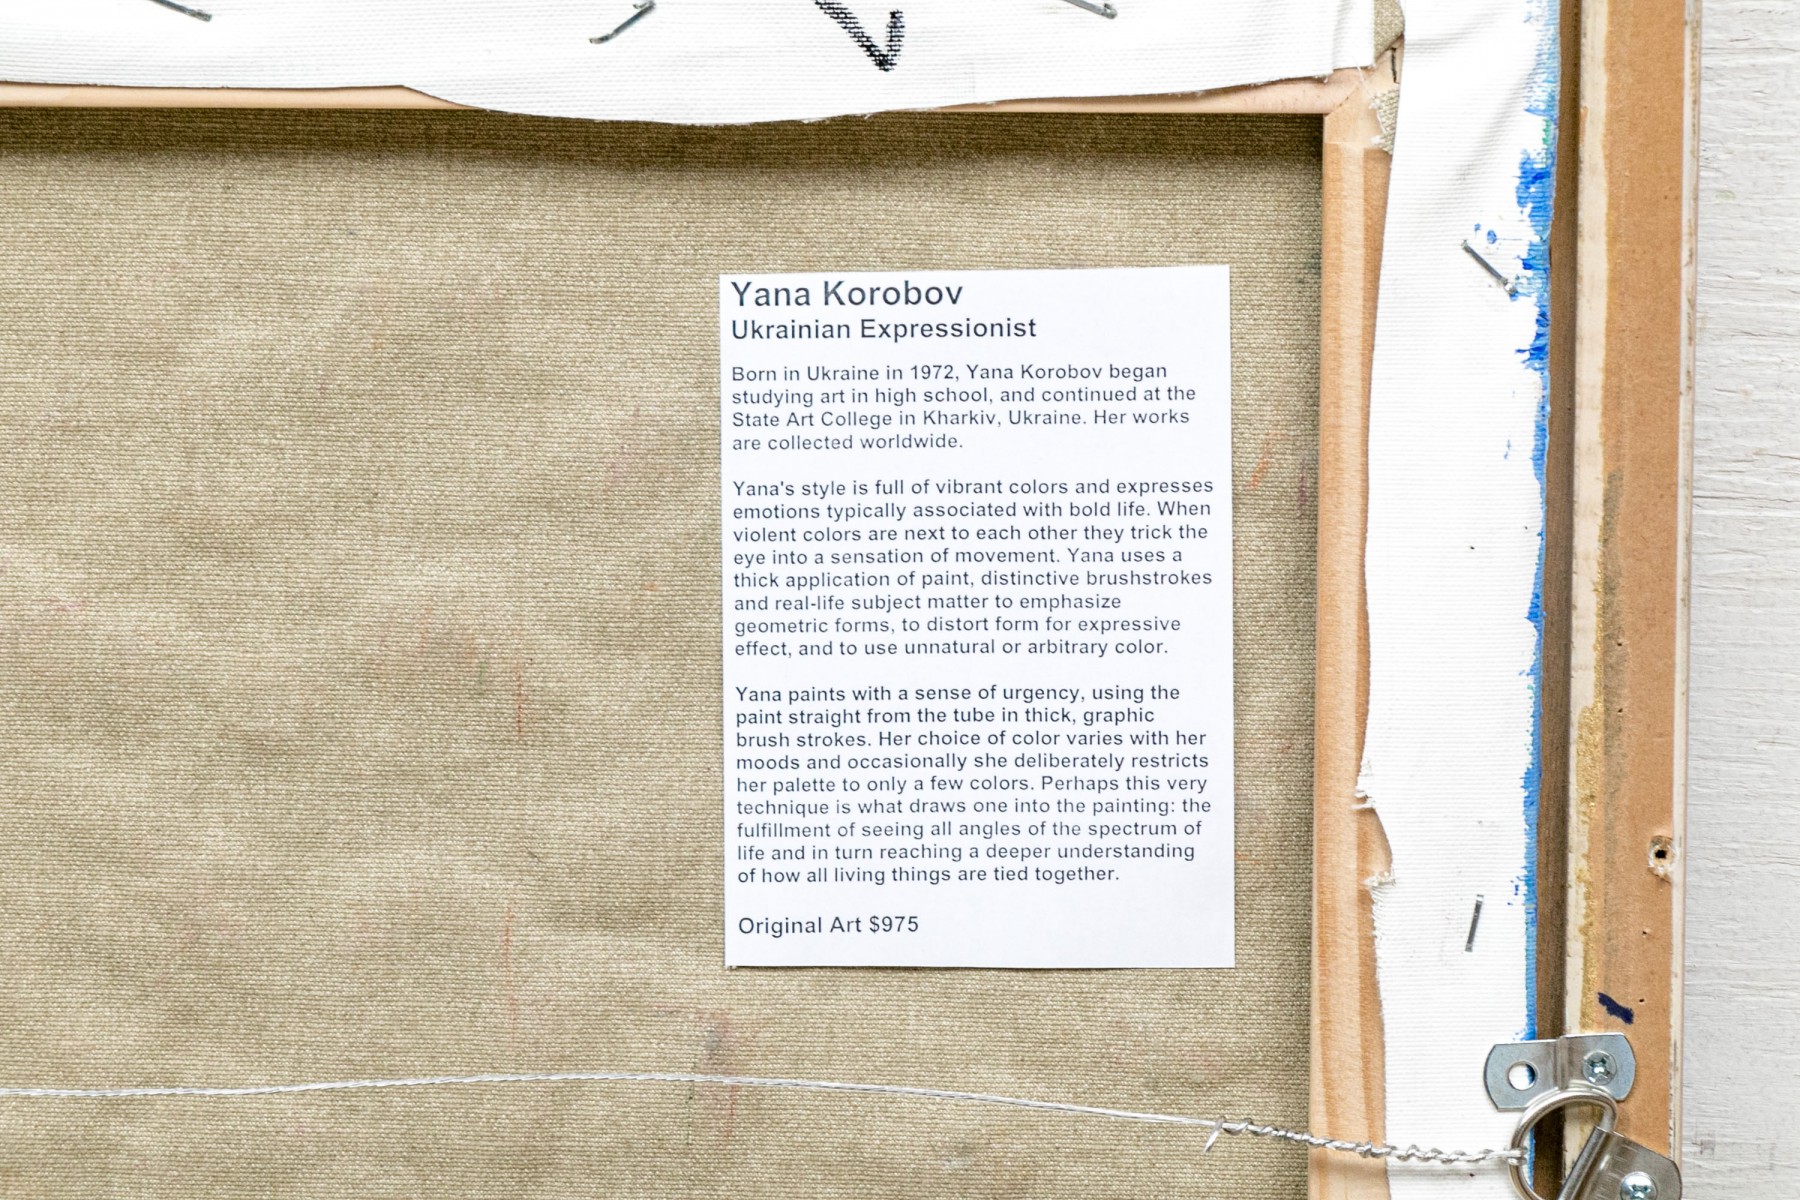 Yana Korobov
Ukrainian Expressionist
Born in Ukraine in 1972, Yana Korobov began
studying art in high school, and continued at the
State Art College in Kharkiv, Ukraine. Her works
are collected worldwide.
Yana's style is full of vibrant colors and expresses
emotions typically associated with bold life. When
violent colors are next to each other they trick the
eye into a sensation of movement. Yana uses a
thick application of paint, distinctive brushstrokes
and real-life subject matter to emphasize
geometric forms, to distort form for expressive
effect, and to use unnatural or arbitrary color.
Yana paints with a sense of urgency, using the
paint straight from the tube in thick, graphic
brush strokes. Her choice of color varies with her
moods and occasionally she deliberately restricts
her palette to only a few colors. Perhaps this very
technique is what draws one into the painting: the
fulfillment of seeing all angles of the spectrum of
life and in turn reaching a deeper understanding
of how all living things are tied together.
Original Art $975